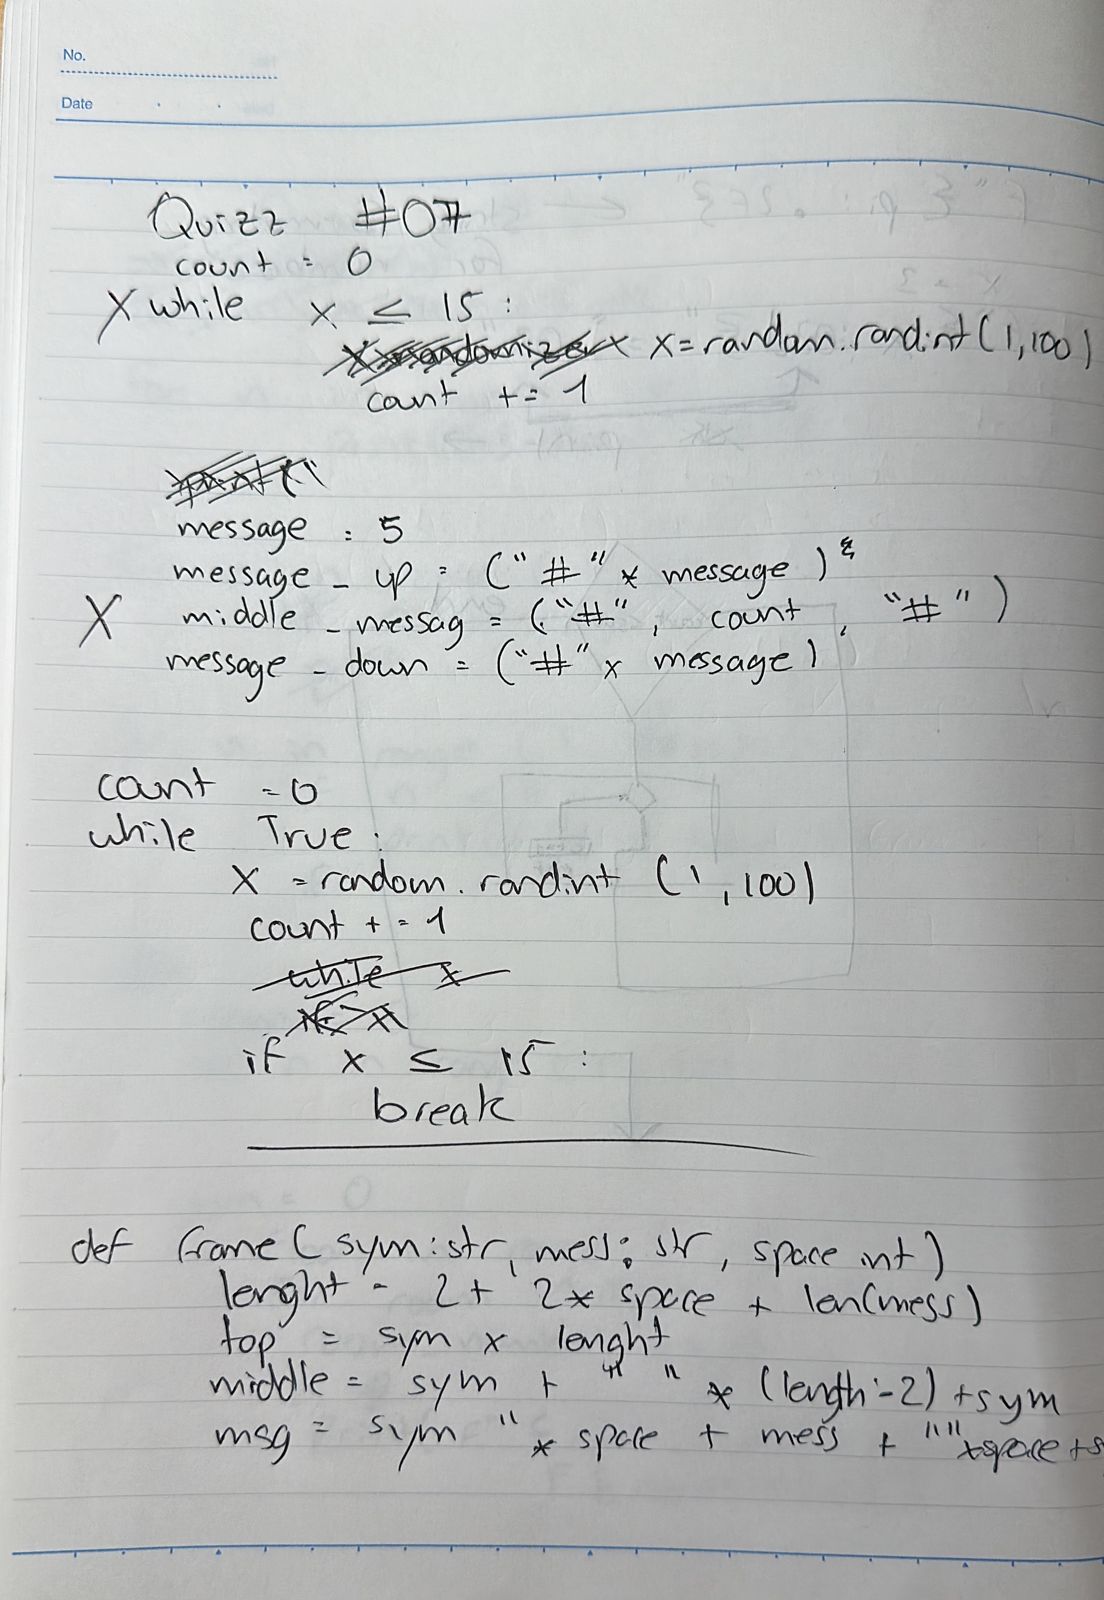 No.
Date
Quizz #07
count = 0
X while x ≤ 15 :
x = random.randint(1,100)
count += 1
message = 5
message_up = ("#" * message)
X middle_messag = ("#", count, "#")
message_down = ("#" x message)
count = 0
while True :
x = random.randint (1,100)
count += 1
while x
if x ≤ 15 :
break
def frame( sym:str, mess: str, space int)
lenght = 2+ 2* space + len(mess)
top = sym x lenght
middle = sym + " " * (length-2) + sym
msg = sym " * space + mess + "" * space + s